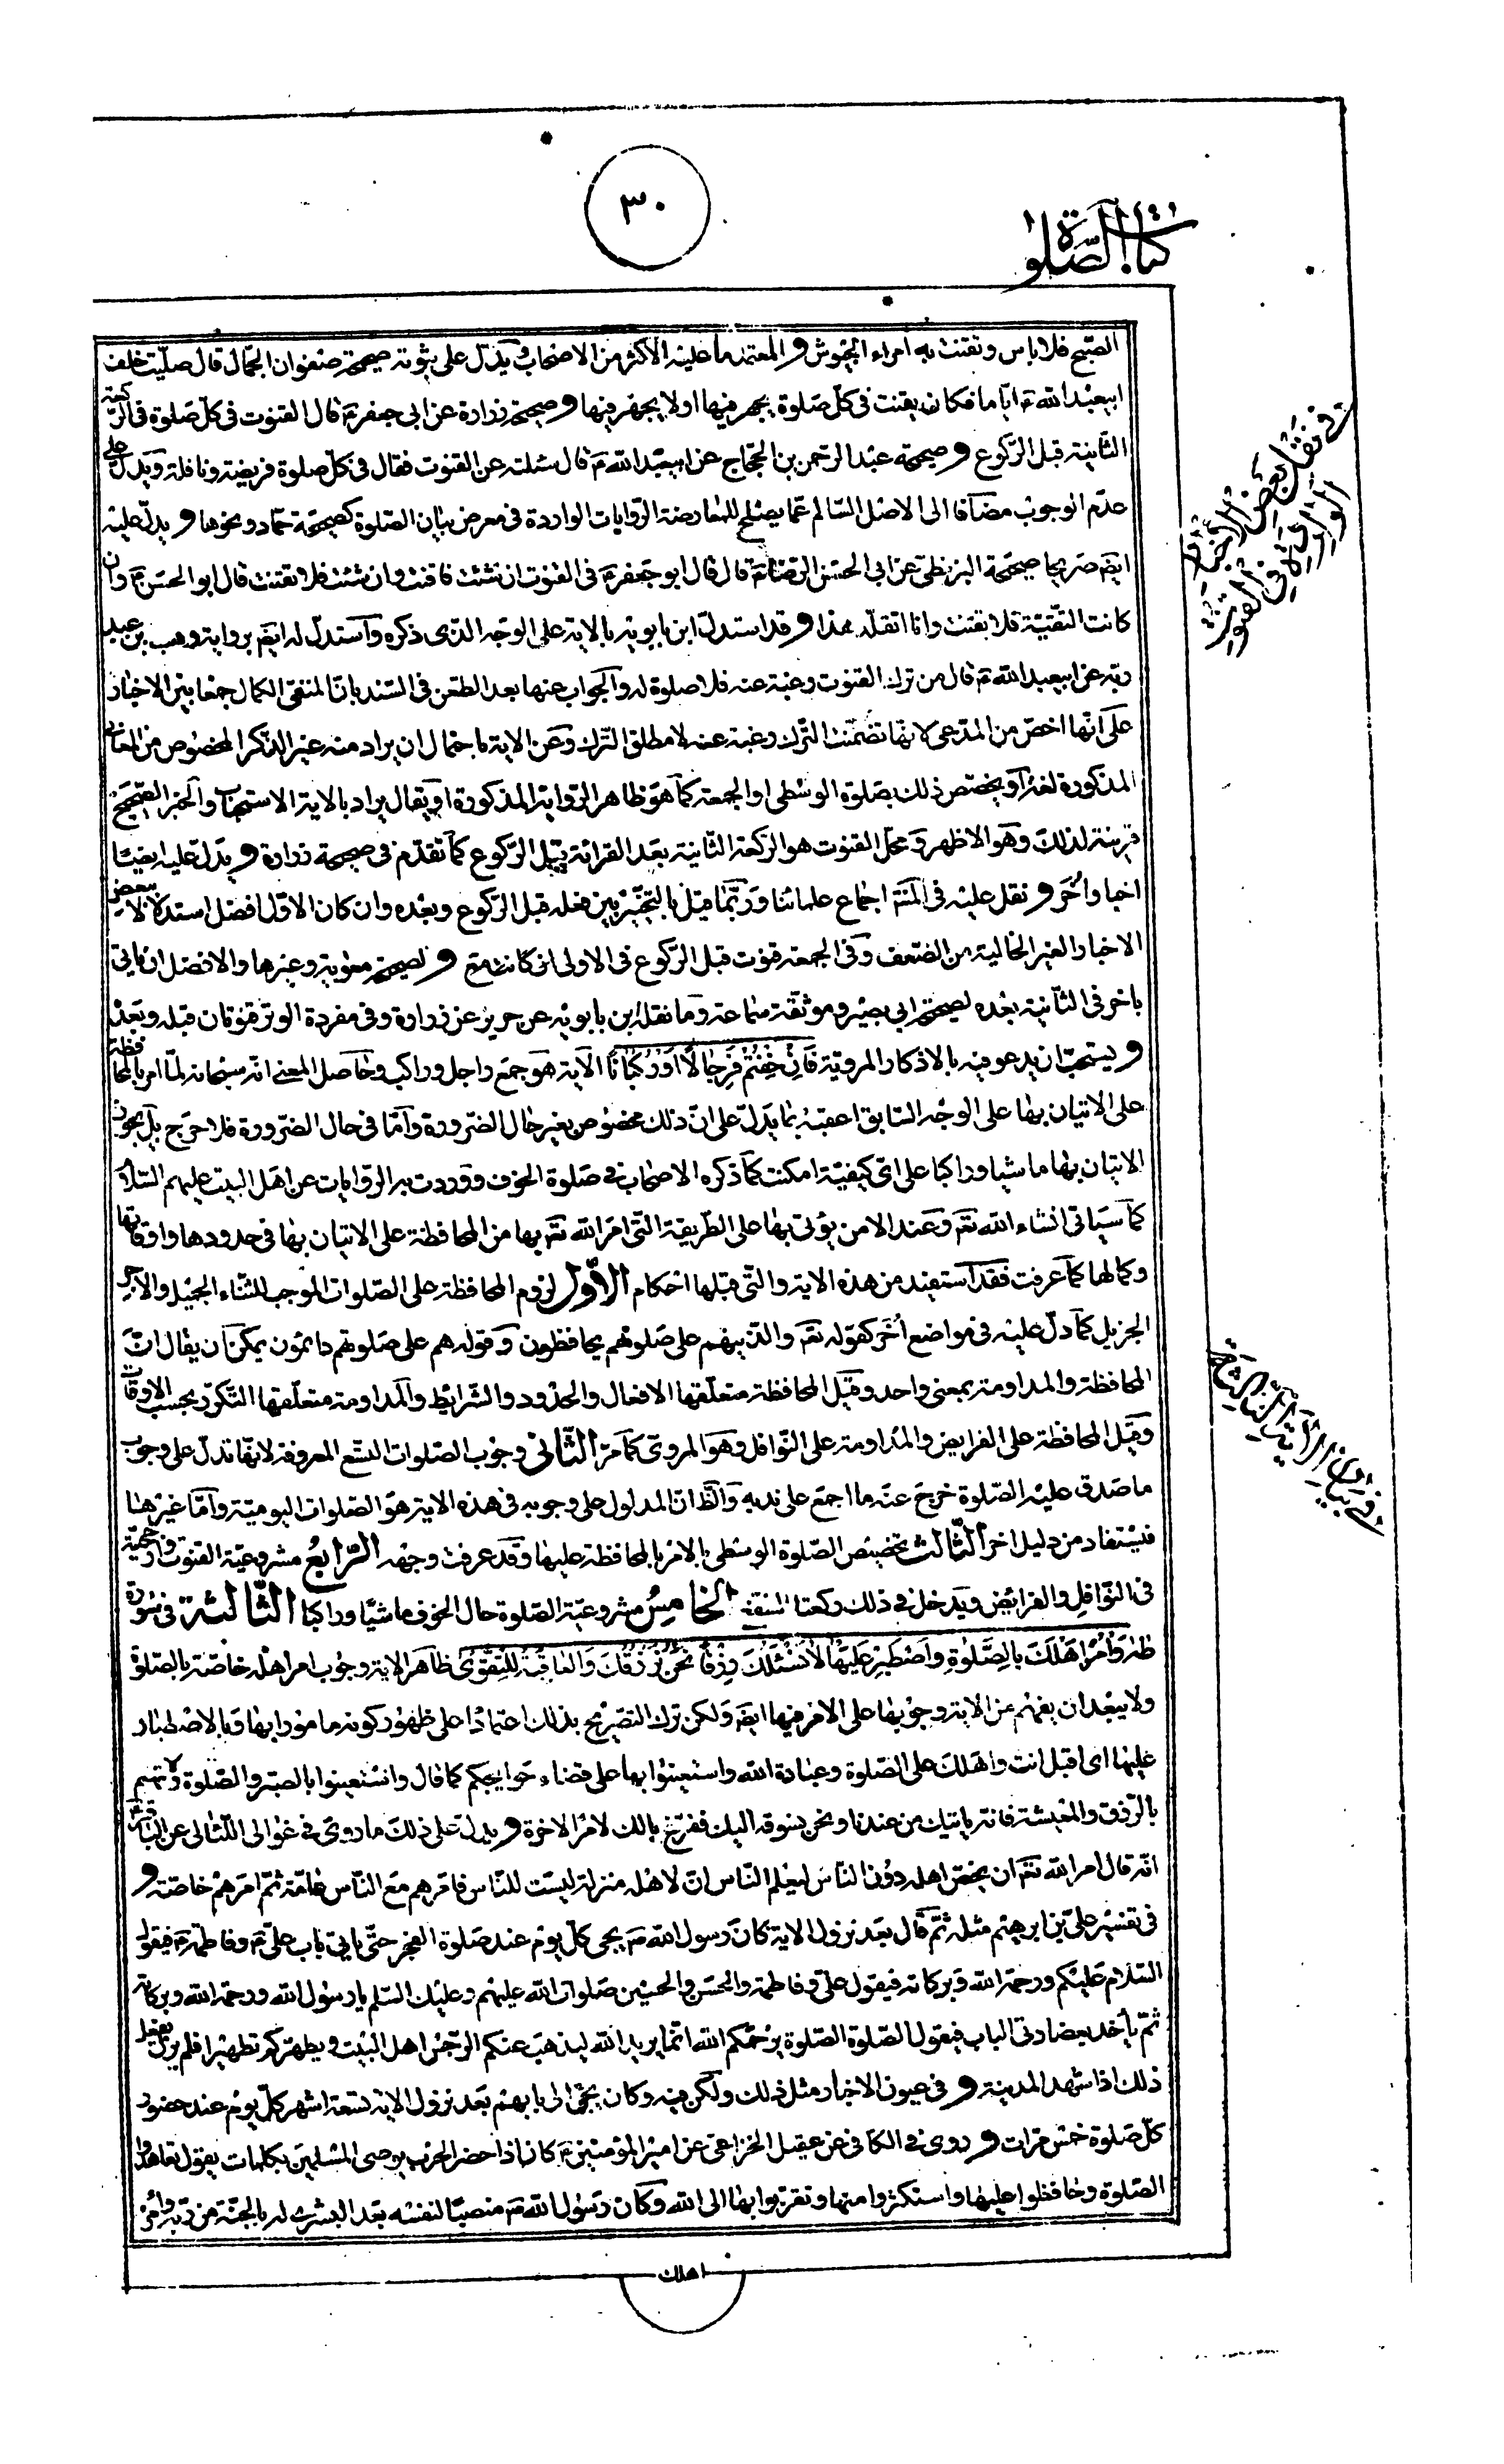 ٣٠
كتاب الصلوة
الصبح فلا باس ونقنت به امراء الجيوش والمعتمد ما عليه الاكثر من الاصحاب ويدلّ على ثبوته صحيحة صفوان الجمّال قال صلّيت خلف
ابيعبد الله ع ايّاما فكان يقنت فى كلّ صلوة يجهر فيها او لا يجهر فيها وصحيحة زرارة عن ابى جعفر ع قال القنوت فى كلّ صلوة فى الركعة
الثّانية قبل الرّكوع وصحيحة عبد الرّحمن بن الحجّاج عن ابيعبد الله ع قال سئلته عن القنوت فقال فى كلّ صلوة فريضة ونافلة ويدلّ على
عدم الوجوب مضافا الى الاصل السّالم عمّا يصلح للمعارضة الرّوايات الواردة فى معرض بيان الصّلوة كصحيحة حمّاد ونحوها ويدلّ عليه
ايضا صريحا صحيحة البزنطى عن ابى الحسن الرّضا ع قال قال ابو جعفر ع فى القنوت ان شئت فاقنت وان شئت فلا تقنت قال ابو الحسن ع وان
كانت التّقيّة فلا تقنت وانا اتقلّد هذا وقد استدلّ ابن بابويه بالاية على الوجه الذى ذكره واستدلّ له ايضا برواية وهب بن عبد
ربّه عن ابيعبد الله ع قال من ترك القنوت رغبة عنه فلا صلوة له والجواب عنها بعد الطّعن فى السّند بانّ المنفى الكمال جمعا بين الاخبار
على انّها اخصّ من المدّعى لانّها تضمّنت التّرك رغبة عنه لا مطلق التّرك وعن الاية باحتمال ان يراد منه غير الذّكر المخصوص من المعانى
المذكورة لغة او يختصّ ذلك بصلوة الوسطى او الجمعة كما هو ظاهر الرّواية المذكورة او يقال يراد بالاية الاستحباب والخبر الصحيح
قرينة لذلك وهو الاظهر ومحلّ القنوت هو الرّكعة الثّانية بعد القرائة قبل الرّكوع كما تقدّم فى صحيحة زرارة ويدلّ عليه ايضا
اخبار اُخر ونقل عليه فى المنته اجماع علمائنا وربّما قيل بالتّخيير بين فعله قبل الرّكوع وبعده وان كان الاوّل افضل استدلالا ببعض
الاخبار الغير الخالية من الضّعف وفى الجمعة قنوت قبل الرّكوع فى الاولى لصحيحة معوية وغيرها والافضل ان ياتى
باخر فى الثّانية بعده لصحيحة ابى بصير وموثّقة سماعة وما نقله ابن بابويه عن حريز عن زرارة وفى مفردة الوتر قنوتان قبله وبعده
ويستحبّ ان يدعو فيه بالاذكار المرويّة فَاِنْ خِفْتُمْ فَرِجَالًا اَوْ رُكْبَانًا الاية هو جمع راجل وراكب وحاصل المعنى انّه سبحانه لمّا امر بالمحافظة
على الاتيان بها على الوجه السّابق اعقبه بما يدلّ على انّ ذلك مخصوص بغير حال الضّرورة وامّا فى حال الضّرورة فلا حرج بل يجوز
الاتيان بها ماشيا وراكبا على اىّ كيفيّة امكنت كما ذكره الاصحاب فى صلوة الخوف ووردت به الرّوايات عن اهل البيت عليهم السّلام
كما سياتى انشاء الله تعم وعند الامن يؤتى بها على الطّريقة التى امر الله تعم بها من المحافظة على الاتيان بها فى حدودها واوقاتها
وكمالها كما عرفت فقد استفيد من هذه الاية والتى قبلها احكام الاوّل لزوم المحافظة على الصّلوات الموجب للثّناء الجميل والاجر
الجزيل كما دلّ عليه فى مواضع اُخر كقوله تعم والّذين هم على صلوتهم يحافظون وقوله هم على صلوتهم دائمون يمكن ان يقال انّ
المحافظة والمداومة بمعنى واحد وقيل المحافظة متعلّقها الافعال والحدود والشّرايط والمداومة متعلّقها التّكرّر بحسب الاوقات
وقيل المحافظة على الفرايض والمداومة على النّوافل وهو المروى كما مرّ الثّانى وجوب الصّلوات التّسع المعروفة لانّها تدلّ على وجوب
ما صدق عليه الصّلوة خرج عنه ما اجمع على ندبه والظّ انّ المدلول على وجوبه فى هذه الاية هو الصّلوات اليوميّة وامّا غيرها
فيستفاد من دليل اخر الثّالث تخصيص الصّلوة الوسطى بالامر بالمحافظة عليها وقد عرفت وجهه الرّابع مشروعيّة القنوت وارجحيته
فى النّوافل والفرائض ويدخل فى ذلك ركعتا الشّفع الخامس مشروعيّة الصّلوة حال الخوف ماشيا وراكبا الثّالثة فى سورة
طه وَأْمُرْ اَهْلَكَ بِالصَّلٰوةِ وَاصْطَبِرْ عَلَيْهَا لَا نَسْئَلُكَ رِزْقًا نَحْنُ نَرْزُقُكَ وَالْعَاقِبَةُ لِلتَّقْوٰى ظاهر الاية وجوب امر اهله خاصّة بالصّلوة
ولا يبعد ان يفهم من الاية وجوبها على الامر فيها ايضا ولكن ترك التّصريح بذلك اعتمادا على ظهور كونه مامورا بها وبالاصطبار
عليها اى اقبل انت واهلك على الصّلوة وعبادة الله واستعينوا بها على قضاء حوايجكم كما قال واستعينوا بالصّبر والصّلوة ولا تهتم
بالرّزق والمعيشة فانّه ياتيك من عندنا ونحن نسوقه اليك ففرّغ بالك لامر الاخرة ويدلّ على ذلك ما روى فى غوالى اللّئالى عن الباقر ع
انّه قال امر الله تعم ان يخصّ اهله دون النّاس ليعلم النّاس انّ لاهله منزلة ليست للنّاس فامرهم مع النّاس عامّة ثمّ امرهم خاصّة و
فى تفسير علىّ بن ابرهيم مثله ثمّ قال بعد نزول الاية كان رسول الله ص يجى كلّ يوم عند صلوة الفجر حتّى ياتى باب علىّ ع وفاطمة ع فيقول
السّلام عليكم ورحمة الله وبركاته فيقول علىّ وفاطمة والحسن والحسين صلوات الله عليهم وعليك السّلم يا رسول الله ورحمة الله وبركاته
ثمّ ياخذ بعضادتى الباب فيقول الصّلوة الصّلوة يرحمكم الله انّما يريد الله ليذهب عنكم الرّجس اهل البيت ويطهّركم تطهيرا فلم يزل يفعل
ذلك اذا شهد المدينة وفى عيون الاخبار مثل ذلك ولكن فيه وكان يجئ الى بابهم بعد نزول الاية تسعة اشهر كلّ يوم عند حضور
كلّ صلوة خمس مرّات وروى فى الكافى عن عقيل الخزاعى عن امير المؤمنين ع كان اذا حضر الحرب يوصى المسلمين بكلمات يقول تعاهدوا
الصّلوة وحافظوا عليها واستكثروا منها وتقرّبوا بها الى الله وكان رسول الله ص منصبا لنفسه بعد البشرى له بالجنّة من ربّه وأمر
اهلك
فى نقل بعض الأخبار
الواردة فى القنوت
فى بيان الأية الثالثة